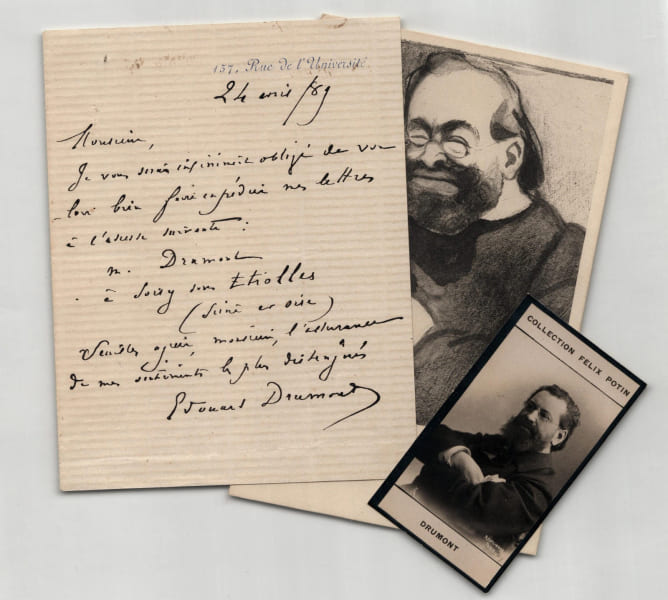 157, Rue de l'Université.
24 avril /89
Monsieur,
Je vous serais infiniment obligé de vou-
loir bien faire expédier mes lettres
à l'adresse suivante :
M. Drumont
à Soisy sous Etiolles
(Seine et Oise)
Veuillez agréer, monsieur, l'assurance
de mes sentiments les plus distingués
Edouard Drumont
COLLECTION FELIX POTIN
DRUMONT